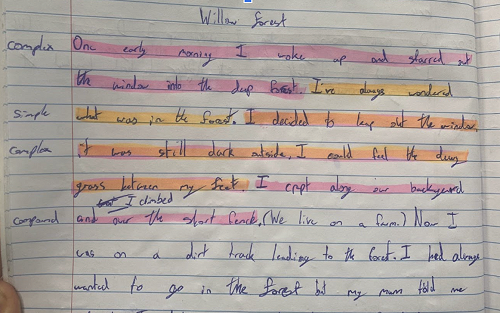 Willow forest
complex One early morning I woke up and starred out
the window into the deep forest. I've always wondered
simple what was in the forest. I decided to leap out the window,
complex it was still dark outside, I could feel the dewy
grass between my feet. I crept along our backyard
I climbed
compound and over the short fence. (We live on a farm.) Now I
was on a dirt track leading to the forest. I had always
wanted to go in the forest but my mum told me